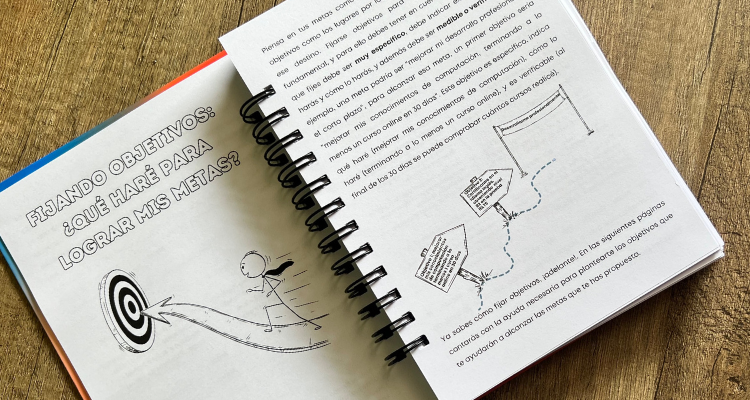 FIJANDO OBJETIVOS:
¿QUÉ HARÉ PARA
LOGRAR MIS METAS?
Piensa en tus metas como
objetivos como los lugares por
ese destino. Fijarse objetivos para
fundamental, y para ello debes tener en
que fijes debe ser muy específico, debe indicar
harás y cómo lo harás, y además debe ser medible o
ejemplo, una meta podría ser "mejorar mi desarrollo profesional
el corto plazo", para alcanzar esa meta, un primer objetivo sería
"mejorar mis conocimientos de computación, terminando a lo
menos un curso online en 30 días". Este objetivo es específico, indica
qué haré (mejorar mis conocimientos de computación), cómo lo
haré (terminando a lo menos un curso online), y es verificable (al
final de los 30 días se puede comprobar cuántos cursos realicé).
Ya sabes cómo fijar objetivos, ¡adelante!. En las siguientes páginas
contarás con la ayuda necesaria para plantearte los objetivos que
te ayudarán a alcanzar las metas que te has propuesto.